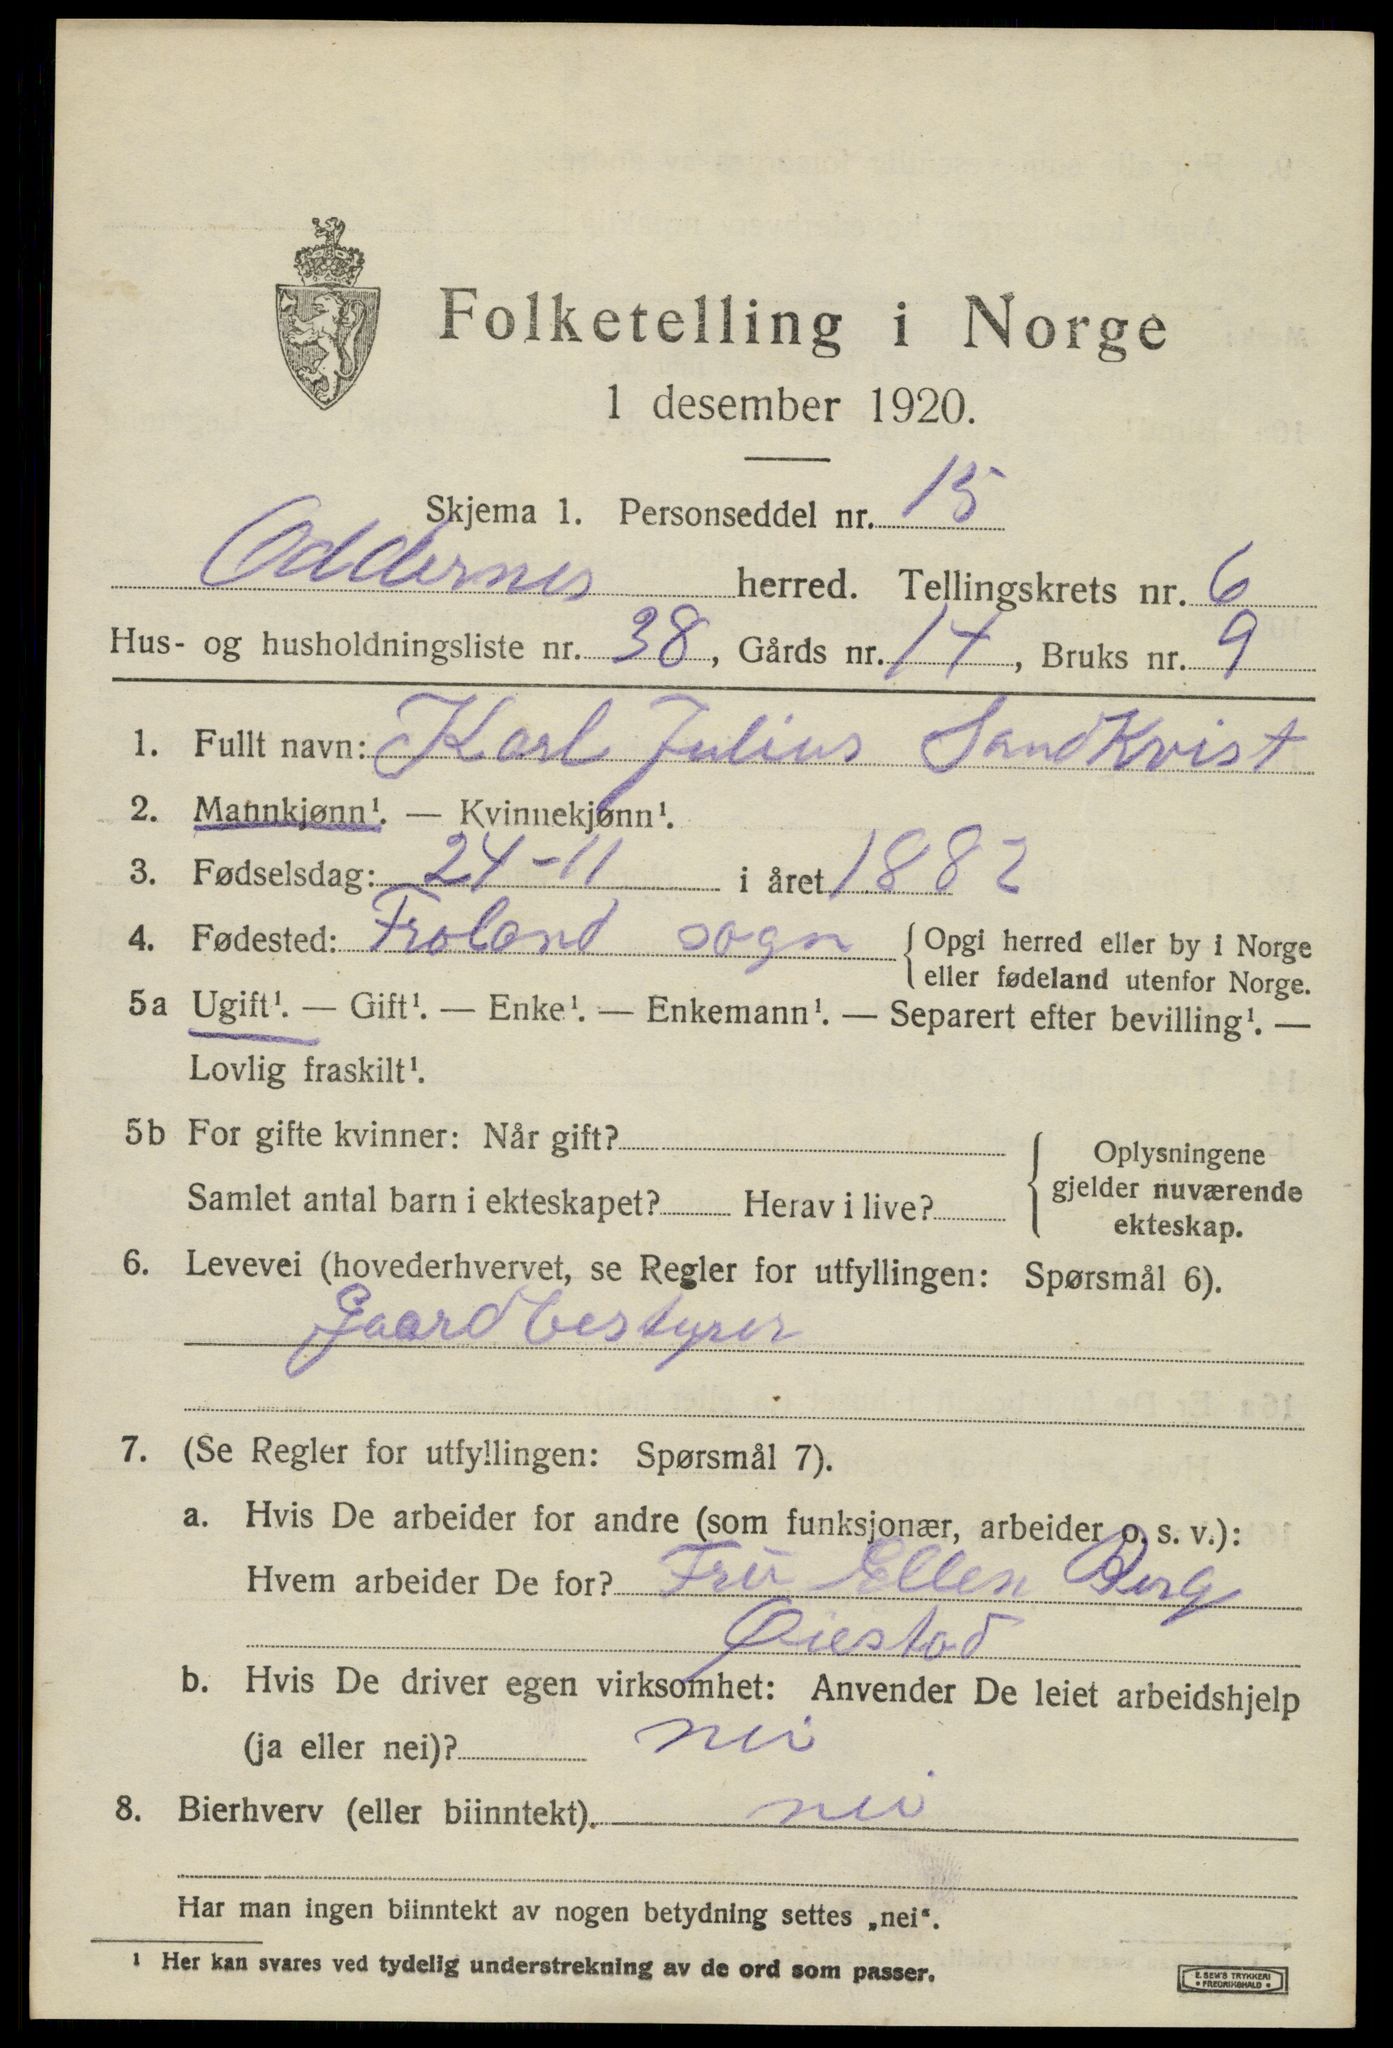 Folketelling i Norge
1 desember 1920.
Skjema 1. Personseddel nr. 15
Oddernes herred. Tellingskrets nr. 6
Hus- og husholdningsliste nr. 38, Gårds nr. 14, Bruks nr. 9
1. Fullt navn: Karl Julius Sandkvist
2. Mannkjønn¹. — Kvinnekjønn¹.
3. Fødselsdag: 24-11 i året 1882
4. Fødested: Froland sogn { Opgi herred eller by i Norge
eller fødeland utenfor Norge.
5a Ugift¹. — Gift¹. — Enke¹. — Enkemann¹. — Separert efter bevilling¹. —
Lovlig fraskilt¹.
5b For gifte kvinner: Når gift?
Samlet antal barn i ekteskapet? Herav i live?
{ Oplysningene
gjelder nuværende
ekteskap.
6. Levevei (hovederhvervet, se Regler for utfyllingen: Spørsmål 6).
Gaardbestyrer
7. (Se Regler for utfyllingen: Spørsmål 7).
a. Hvis De arbeider for andre (som funksjonær, arbeider o. s. v.):
Hvem arbeider De for? Frü Ellen Berg
Øiestad
b. Hvis De driver egen virksomhet: Anvender De leiet arbeidshjelp
(ja eller nei)? nei
8. Bierhverv (eller biinntekt). nei
Har man ingen biinntekt av nogen betydning settes „nei“.
¹ Her kan svares ved tydelig understrekning av de ord som passer.
E. SEM'S TRYKKERI
• FREDRIKSHALD •